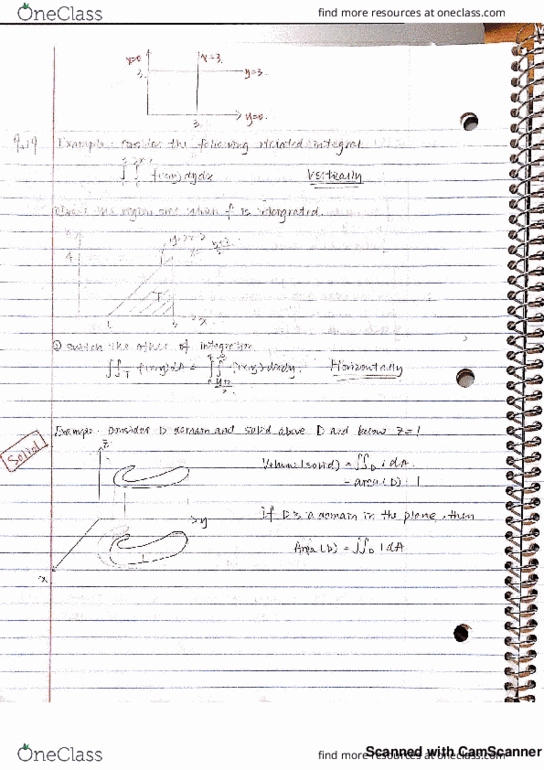 OneClass find more resources at oneclass.com
x=0 x=3
3 y=3.
3 y=0.
Example: consider the following iterated integral
f(x,y) dydx Vertically
the region over when f is intergrated.
4
T
1 x
② switch the other of integration
∬_T f(x,y) dA = ∫∫ f(x,y) dxdy. Horizontally
Example. consider D domain and solid above D and below Z=1
Solid
Z
Volume (solid) = ∬_D 1 dA.
= area(D) · 1
y
if D is a domain in the plane, then
Area (D) = ∬_D 1 dA
x
OneClass find more resources at oneclass.com
Scanned with CamScanner